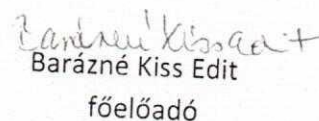 Barázné Kiss Edit
Barázné Kiss Edit
főelőadó